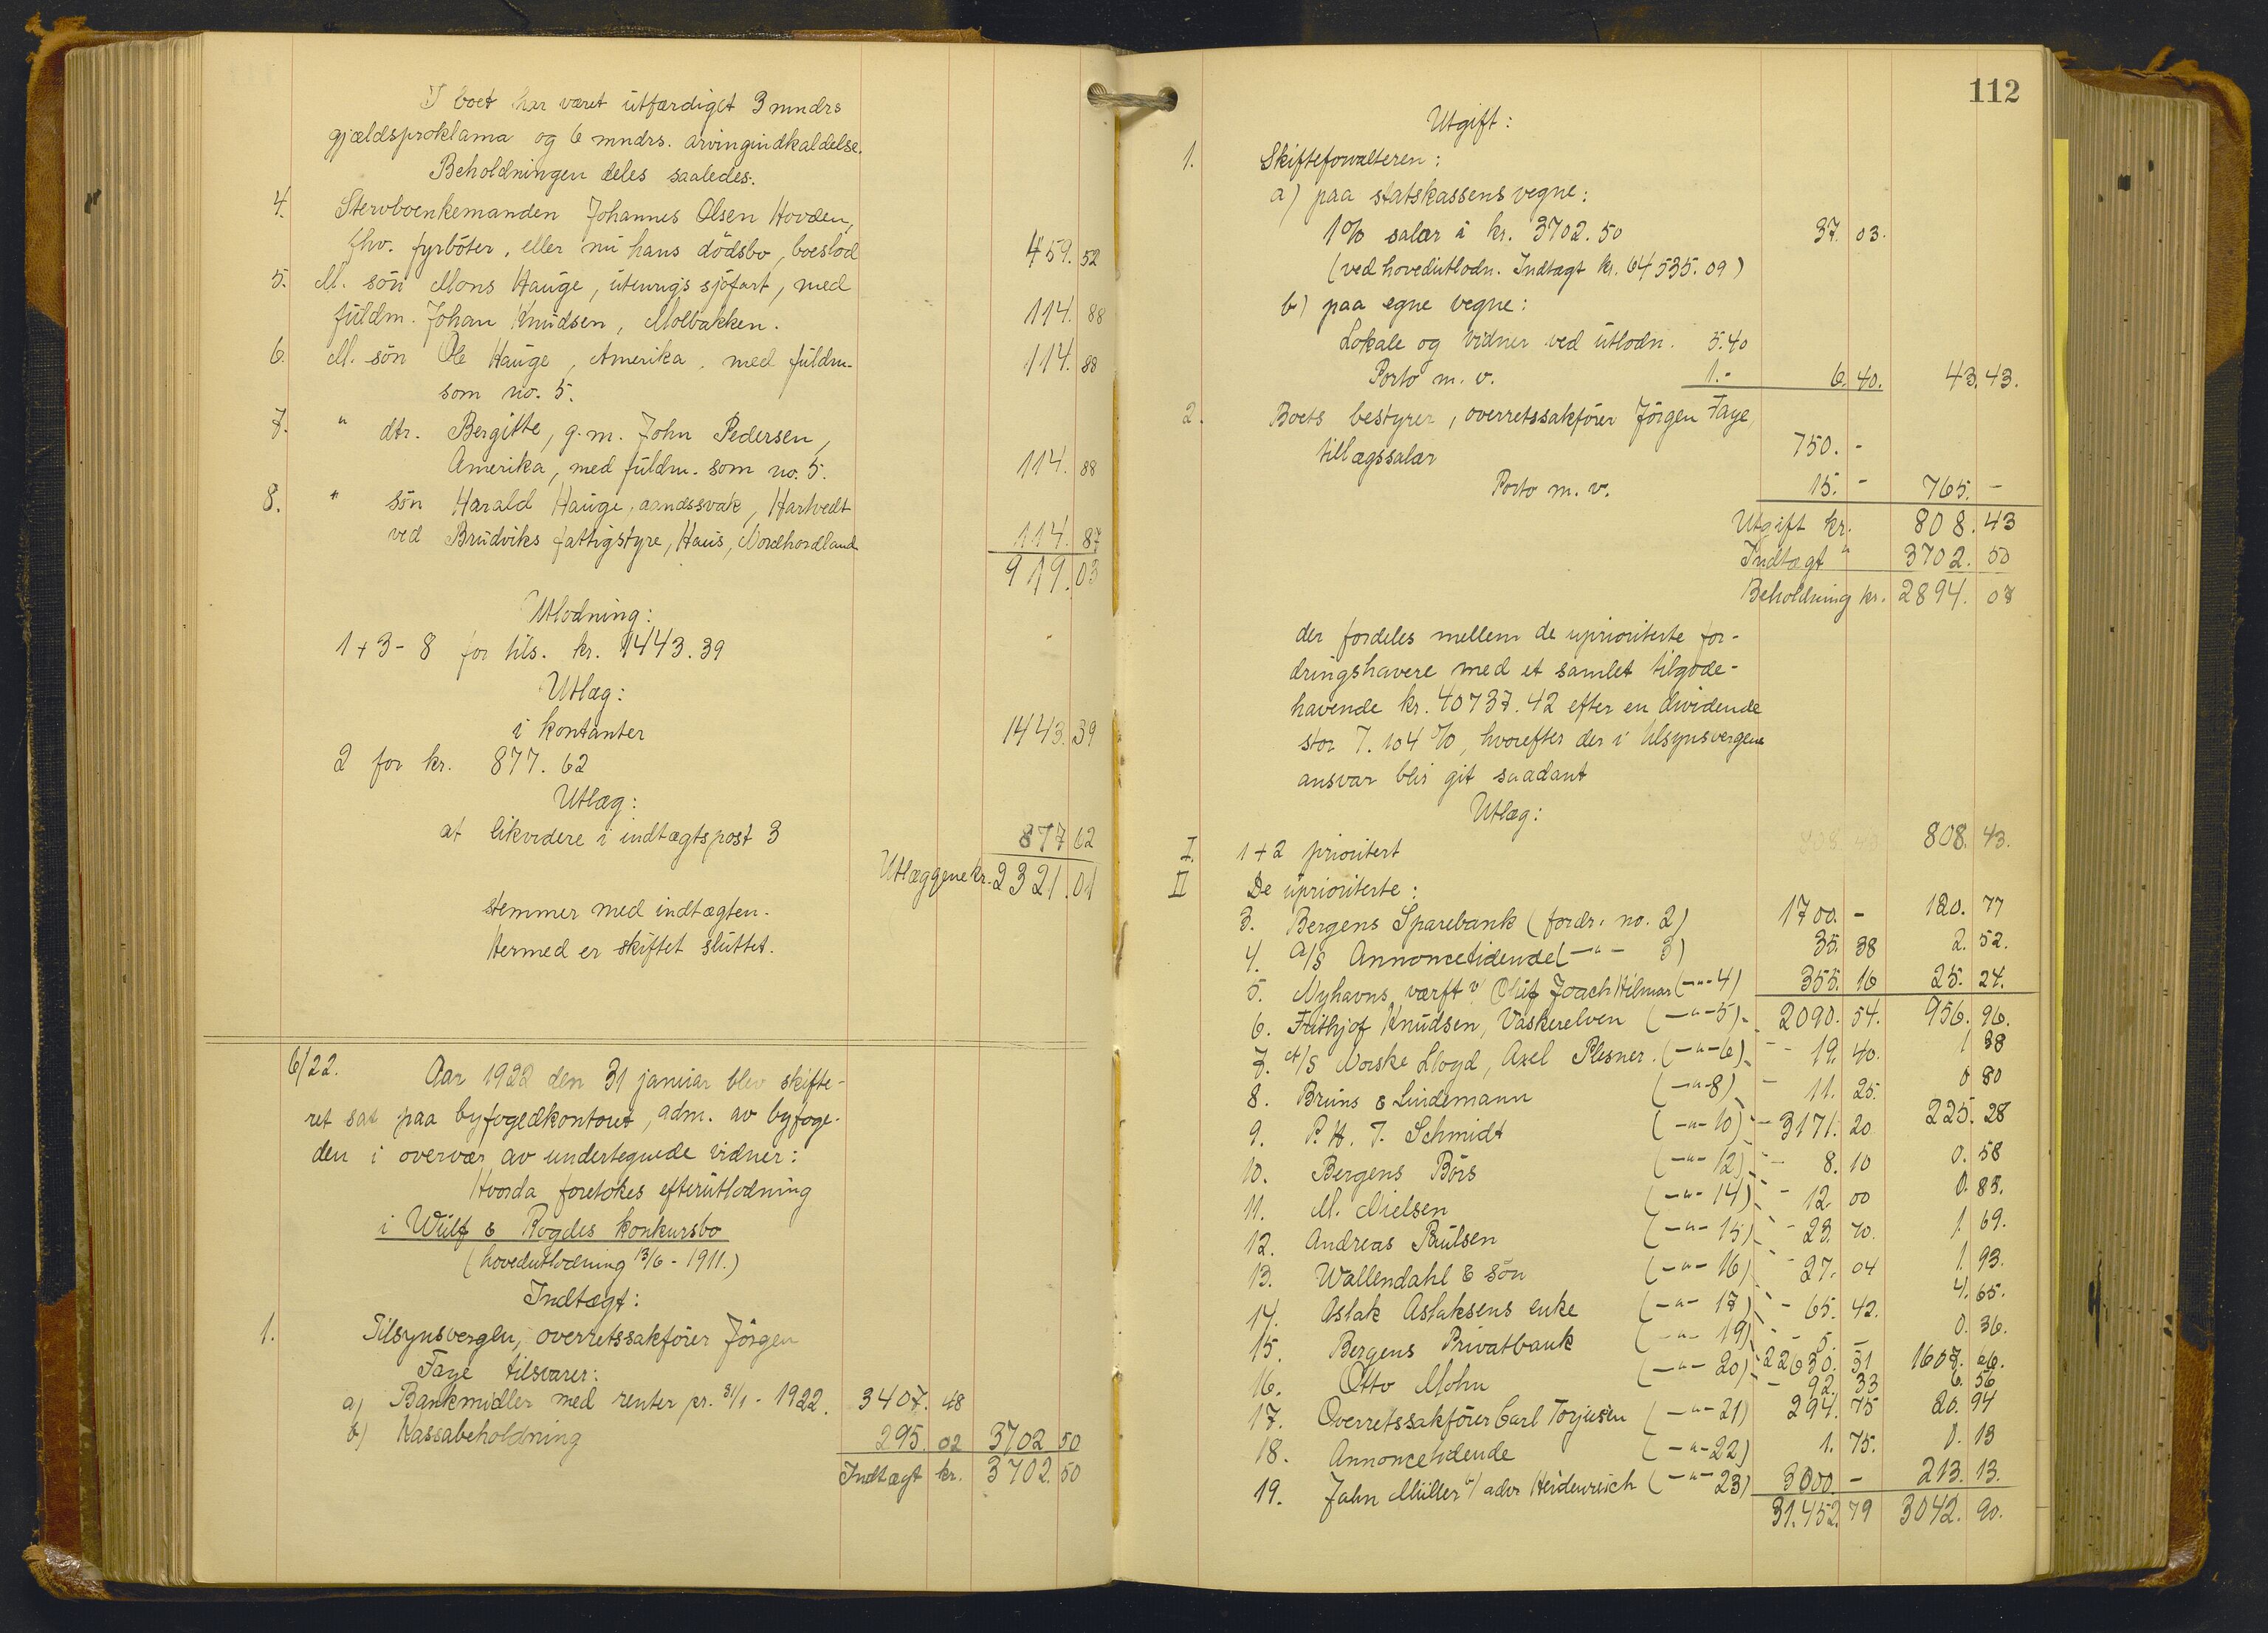 I boet har været utfærdiget 3 mndrs
gjældsproklama og 6 mndrs. arvingindkaldelse.
Beholdningen deles saaledes:
4. Stervboenkemanden Johannes Olsen Hovden,
fhv. fyrböter, eller nu hans dödsbo, boeslod 459.52
5. M. sön Mons Hauge, utenrigs sjöfart, med
fuldm. Johan Knudsen, Molbakken. 114.88
6. M. sön Ole Hauge, Amerika, med fuldm. 114.88
som no. 5.
7. " dtr. Bergitte, g.m. John Pedersen,
Amerika, med fuldm. som no. 5. 114.88
8. " sön Harald Hauge, aandssvak, Hartvedt
ved Brudviks fattigstyre, Haus, Nordhordland 114.87
919.03
Utlodning:
1 + 3 - 8 for tils. kr. 1443.39
Utlæg:
i kontanter 1443.39
2 for kr. 877.62
Utlæg:
at likvidere i indtægtspost 3 877 62
Utlæggene kr. 2321.01
stemmer med indtægten.
Hermed er skiftet sluttet.
6/22. Aar 1922 den 31 januar blev skifte-
ret sat paa byfogedkontoret, adm. av byfoge-
den i overvær av undertegnede vidner:
Hvorda foretokes efterutlodning
i Wulf & Rogdes konkursbo
(hovedutlodning 13/6 - 1911.)
Indtægt:
1. Tilsynsvergen, overretssakförer Jörgen
Faye tilsvarer:
a) Bankmidler med renter pr. 31/1 - 1922. 3407.48
b) Kassabeholdning 295.02 3702 50
Indtægt kr. 3702.50
112
Utgift:
1. Skifteforvalteren:
a) paa statskassens vegne:
1% salær i kr. 3702.50 37.03.
(ved hovedutlodn. Indtægt kr. 64535.09)
b) paa egne vegne:
Lokale og vidner ved utlodn. 5.40
Porto m.v. 1.- 6.40. 43.43.
2. Boets bestyrer, overretssakförer Jörgen Faye,
tillægssalær 750.-
Porto m.v. 15.- 765.-
Utgift kr. 808.43
Indtægt " 3702.50
Beholdning kr. 2894.07
der fordeles mellem de uprioriterte for-
dringshavere med et samlet tilgode-
havende kr. 40737.42 efter en dividende
stor 7.104%, hvorefter der i tilsynsvergens
ansvar blir git saadant
Utlæg:
I. 1 + 2 prioritert 808.43.
II De uprioriterte:
3. Bergens Sparebank (fordr. no. 2) 1700.- 120.77
4. A/S Annoncetidende (-"- 3) 35.38 2.52.
5. Nyhavns værft v/ Oluf Joach Hilmar (-"-4) 355.16 25.24.
6. Frithjof Knudsen, Vaskerelven (-"-5) 2090.54. 956.96.
7. A/S Norske Lloyd, Axel Plesner. (-"-6) 19.40. 1 38
8. Bruns & Lindemann (-"-8) 11.25. 0 80
9. P.H.T. Schmidt (-"-10) 3171.20 225.28
10. Bergens Börs (-"-12) 8.10 0.58
11. M. Nielsen (-"-14) 12.00 0.85.
12. Andreas Paulsen (-"-15) 23.70. 1.69.
13. Wallendahl & sön (-"-16) 27.04 1.93.
14. Aslak Aslaksens enke (-"-17) 65.42. 4.65.
15. Bergens Privatbank (-"-19) 5.- 0.36.
16. Otto Mohn (-"-20) 22630.31 1607.66.
92.33 6.56
17. Overretssakförer Carl Torjusen (-"-21) 294.75 20.94
18. Annoncetidende (-"-22) 1.75. 0.13
19. Jahn Müller v/ adv Heidenreich (-"-23) 3000.- 213.13.
31.452.79 3042.90.